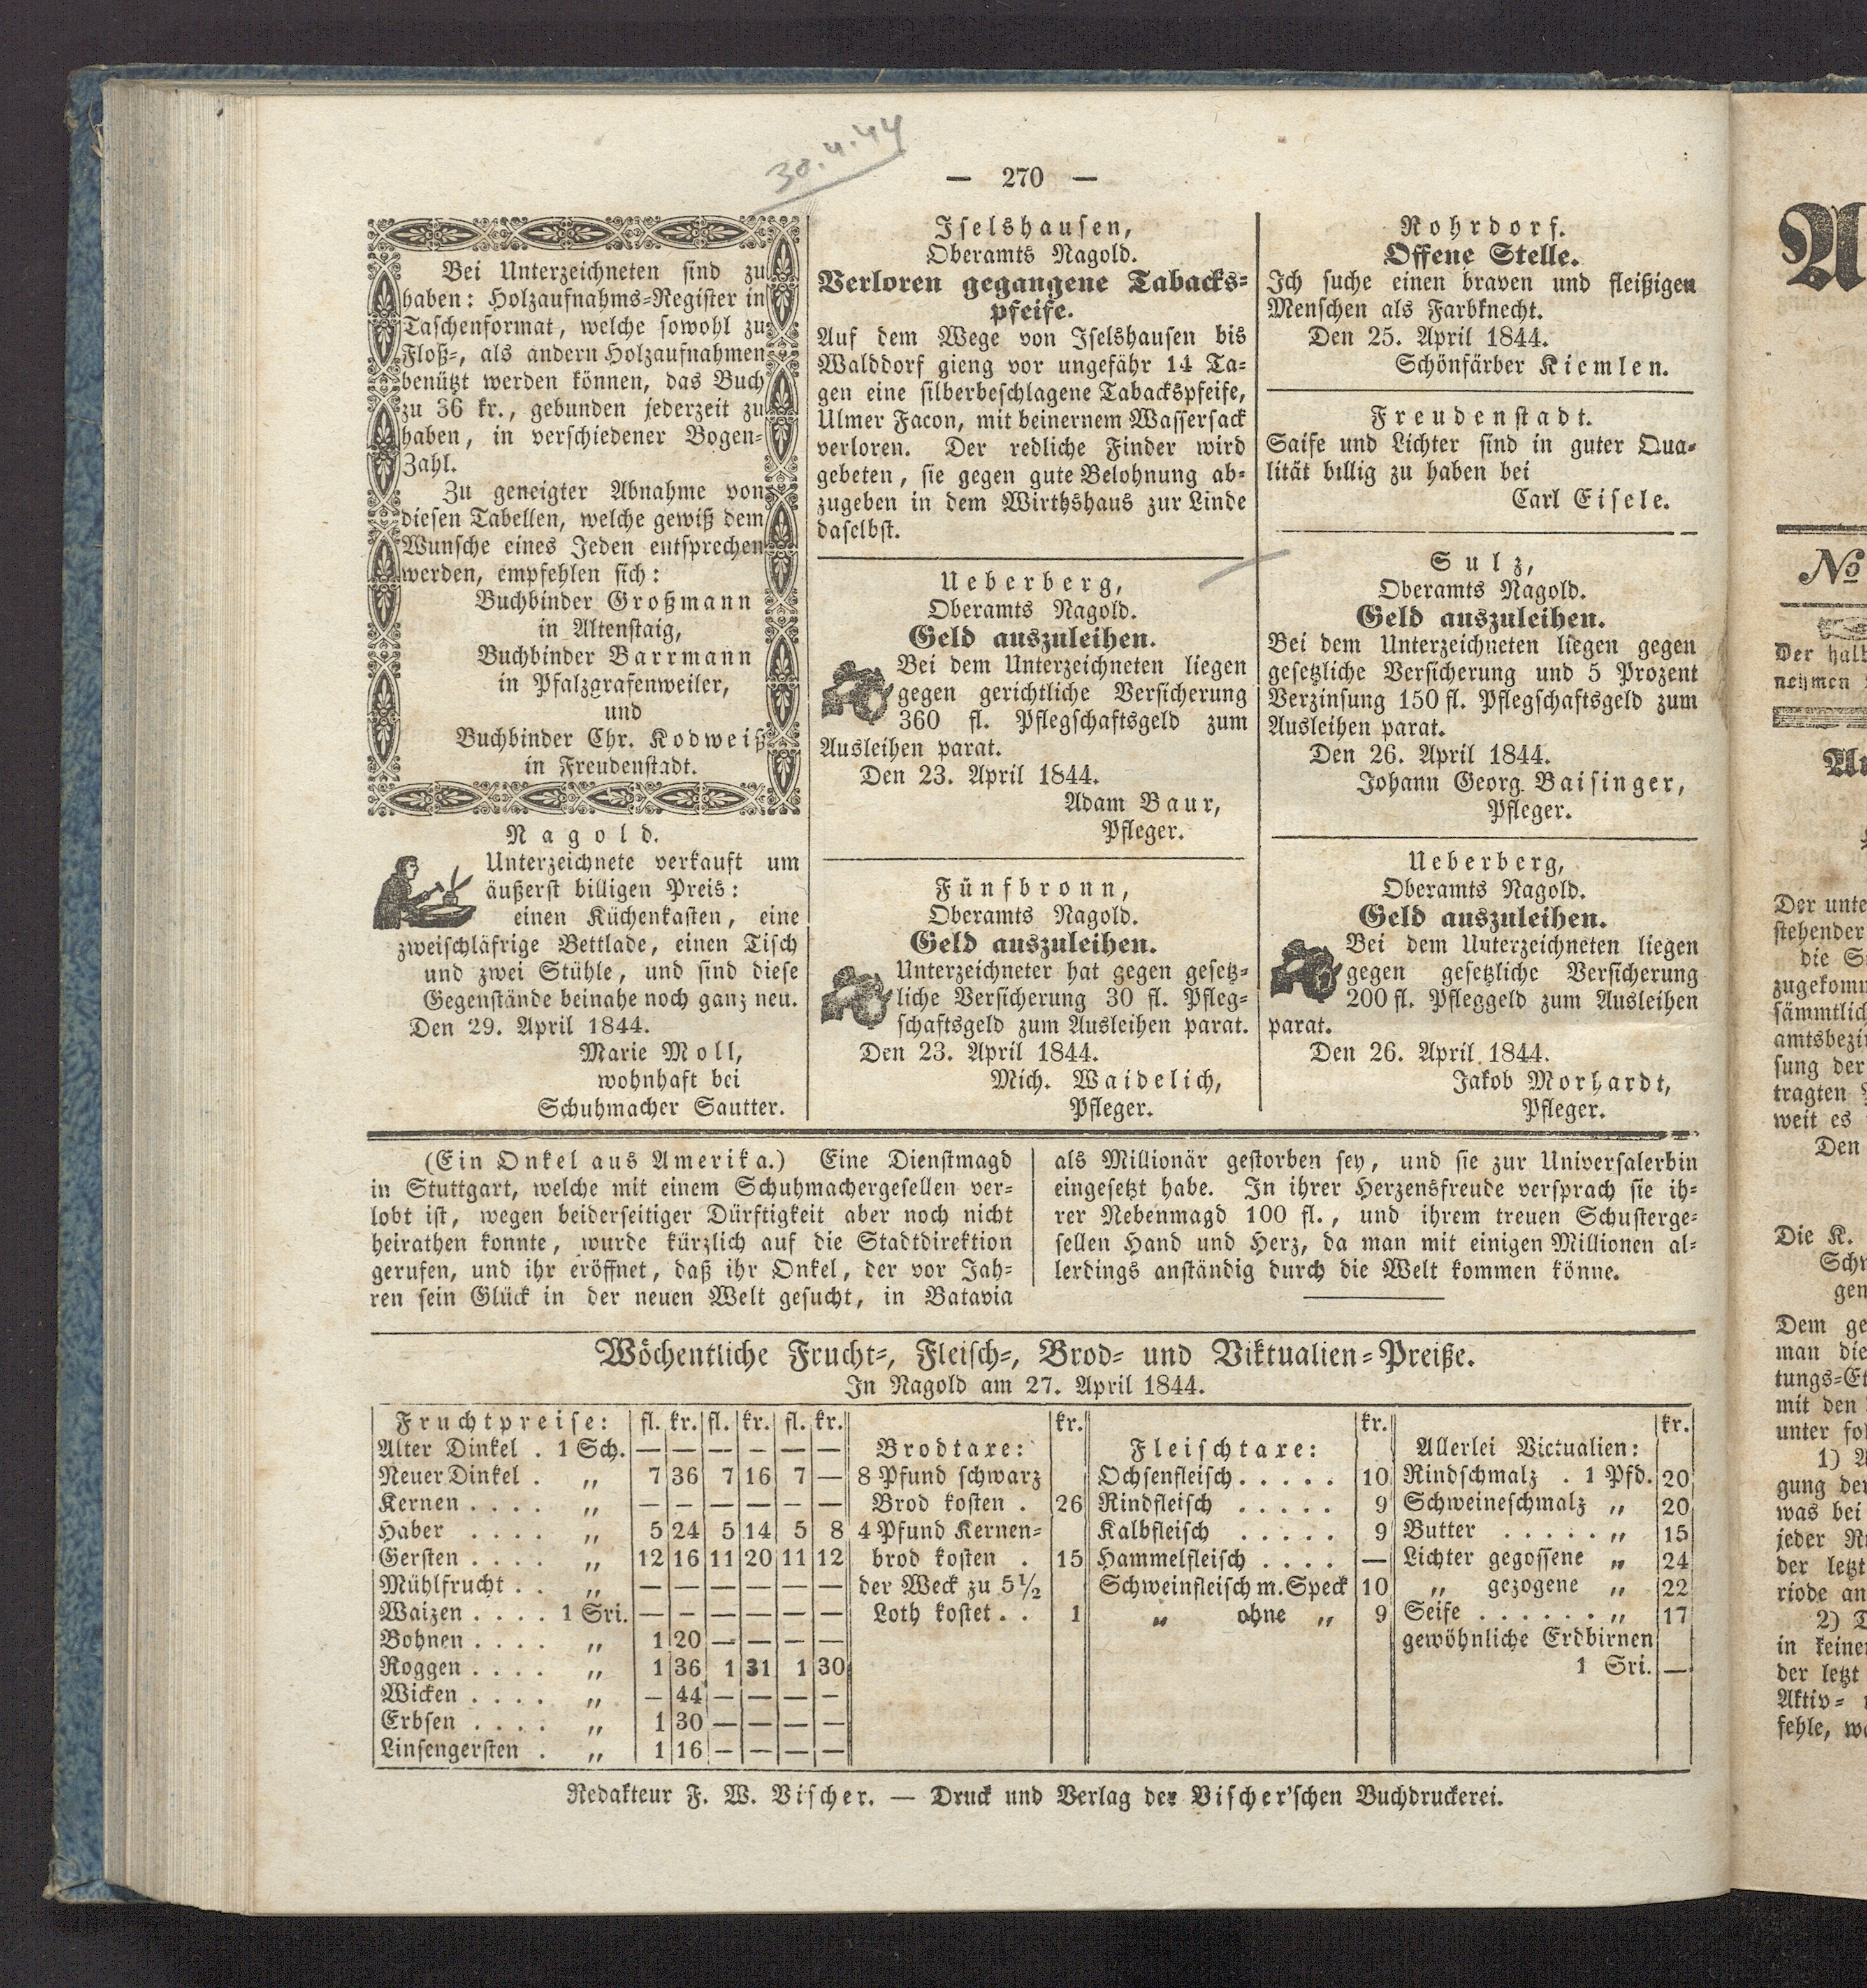 30.4.44
— 270 —
Bei Unterzeichneten sind zu
haben: Holzaufnahms-Register in
Taschenformat, welche sowohl zu
Floß-, als andern Holzaufnahmen
benützt werden können, das Buch
zu 36 kr., gebunden jederzeit zu
haben, in verschiedener Bogen-
Zahl.
Zu geneigter Abnahme von
diesen Tabellen, welche gewiß dem
Wunsche eines Jeden entsprechen
werden, empfehlen sich:
Buchbinder Großmann
in Altenstaig,
Buchbinder Barrmann
in Pfalzgrafenweiler,
und
Buchbinder Chr. Kodweiß
in Freudenstadt.
Nagold.
Unterzeichnete verkauft um
äußerst billigen Preis:
einen Küchenkasten, eine
zweischläfrige Bettlade, einen Tisch
und zwei Stühle, und sind diese
Gegenstände beinahe noch ganz neu.
Den 29. April 1844.
Marie Moll,
wohnhaft bei
Schuhmacher Sautter.
Iselshausen,
Oberamts Nagold.
Verloren gegangene Tabacks-
pfeife.
Auf dem Wege von Iselshausen bis
Walddorf gieng vor ungefähr 14 Ta-
gen eine silberbeschlagene Tabackspfeife,
Ulmer Facon, mit beinernem Wassersack
verloren. Der redliche Finder wird
gebeten, sie gegen gute Belohnung ab-
zugeben in dem Wirthshaus zur Linde
daselbst.
Ueberberg,
Oberamts Nagold.
Geld auszuleihen.
Bei dem Unterzeichneten liegen
gegen gerichtliche Versicherung
360 fl. Pflegschaftsgeld zum
Ausleihen parat.
Den 23. April 1844.
Adam Baur,
Pfleger.
Fünfbronn,
Oberamts Nagold.
Geld auszuleihen.
Unterzeichneter hat gegen gesetz-
liche Versicherung 30 fl. Pfleg-
schaftsgeld zum Ausleihen parat.
Den 23. April 1844.
Mich. Waidelich,
Pfleger.
Rohrdorf.
Offene Stelle.
Ich suche einen braven und fleißigen
Menschen als Farbknecht.
Den 25. April 1844.
Schönfärber Kiemlen.
Freudenstadt.
Saife und Lichter sind in guter Qua-
lität billig zu haben bei
Carl Eisele.
Sulz,
Oberamts Nagold.
Geld auszuleihen.
Bei dem Unterzeichneten liegen gegen
gesetzliche Versicherung und 5 Prozent
Verzinsung 150 fl. Pflegschaftsgeld zum
Ausleihen parat.
Den 26. April 1844.
Johann Georg Baisinger,
Pfleger.
Ueberberg,
Oberamts Nagold.
Geld auszuleihen.
Bei dem Unterzeichneten liegen
gegen gesetzliche Versicherung
200 fl. Pfleggeld zum Ausleihen
parat.
Den 26. April 1844.
Jakob Morhardt,
Pfleger.
(Ein Onkel aus Amerika.) Eine Dienstmagd
in Stuttgart, welche mit einem Schuhmachergesellen ver-
lobt ist, wegen beiderseitiger Dürftigkeit aber noch nicht
heirathen konnte, wurde kürzlich auf die Stadtdirektion
gerufen, und ihr eröffnet, daß ihr Onkel, der vor Jah-
ren sein Glück in der neuen Welt gesucht, in Batavia
als Millionär gestorben sey, und sie zur Universalerbin
eingesetzt habe. In ihrer Herzensfreude versprach sie ih-
rer Nebenmagd 100 fl., und ihrem treuen Schusterge-
sellen Hand und Herz, da man mit einigen Millionen al-
lerdings anständig durch die Welt kommen könne.
Wöchentliche Frucht-, Fleisch-, Brod- und Viktualien-Preiße.
In Nagold am 27. April 1844.
Fruchtpreise: fl. kr. fl. kr. fl. kr.
Alter Dinkel . 1 Sch. — — — — — —
Neuer Dinkel . „ 7 36 7 16 7 —
Kernen . . . . „ — — — — — —
Haber . . . . „ 5 24 5 14 5 8
Gersten . . . . „ 12 16 11 20 11 12
Mühlfrucht . . „ — — — — — —
Waizen . . . . 1 Sri. — — — — — —
Bohnen . . . . „ 1 20 — — — —
Roggen . . . . „ 1 36 1 31 1 30
Wicken . . . . „ — 44 — — — —
Erbsen . . . . „ 1 30 — — — —
Linsengersten . „ 1 16 — — — —
kr.
Brodtaxe:
8 Pfund schwarz
Brod kosten . 26
4 Pfund Kernen-
brod kosten . 15
der Weck zu 5½
Loth kostet . . 1
kr.
Fleischtaxe:
Ochsenfleisch . . . . . 10
Rindfleisch . . . . . 9
Kalbfleisch . . . . . 9
Hammelfleisch . . . . —
Schweinfleisch m. Speck 10
„ ohne „ 9
kr.
Allerlei Victualien:
Rindschmalz . 1 Pfd. 20
Schweineschmalz „ 20
Butter . . . . . „ 15
Lichter gegossene „ 24
„ gezogene „ 22
Seife . . . . . . „ 17
gewöhnliche Erdbirnen
1 Sri. —
Redakteur F. W. Vischer. — Druck und Verlag der Vischer'schen Buchdruckerei.
A
No
Der
nehmen
Der unte
stehender
die
zugekom
sämmtlich
amtsbezi
sung der
tragten
weit es
Den
Die K.
Sch
gen
Dem ge
man die
tungs-Et
mit den
unter fol
1)
gung der
was bei
jeder
der letz
riode an
2)
in keine
der letzt
Aktiv-
fehle, w